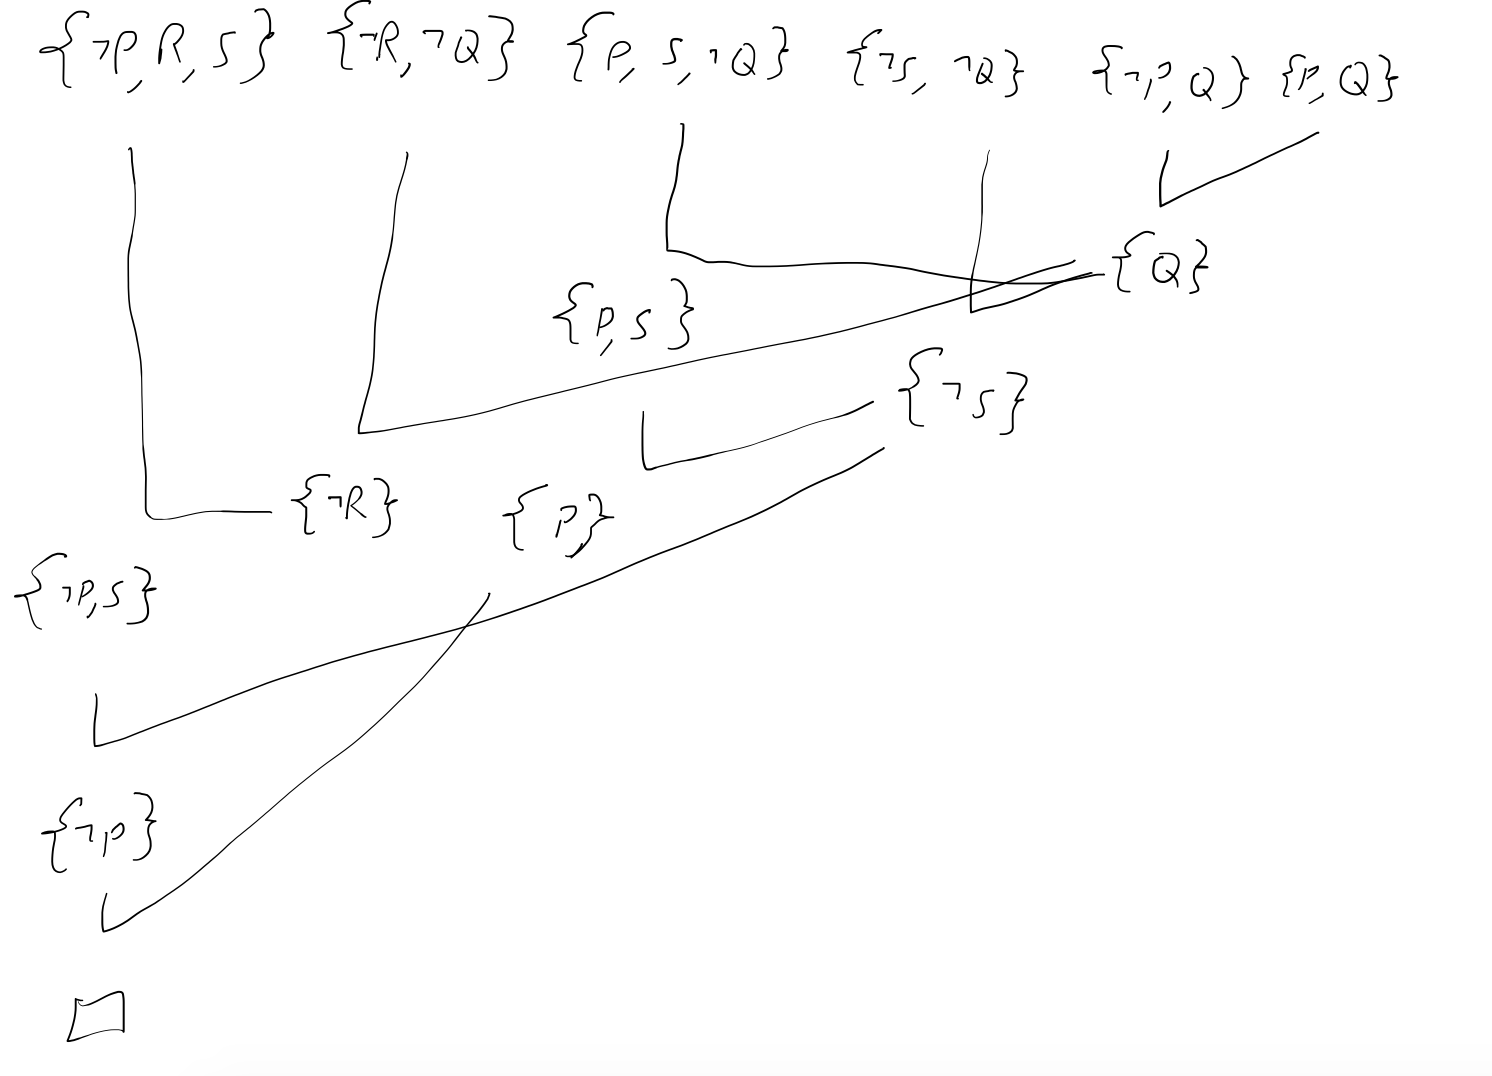 {¬P, R, S} {¬R, ¬Q} {P, S, ¬Q} {¬S, ¬Q} {¬P, Q} {P, Q}
{Q}
{P, S}
{¬S}
{¬R} {P}
{¬P, S}
{¬P}